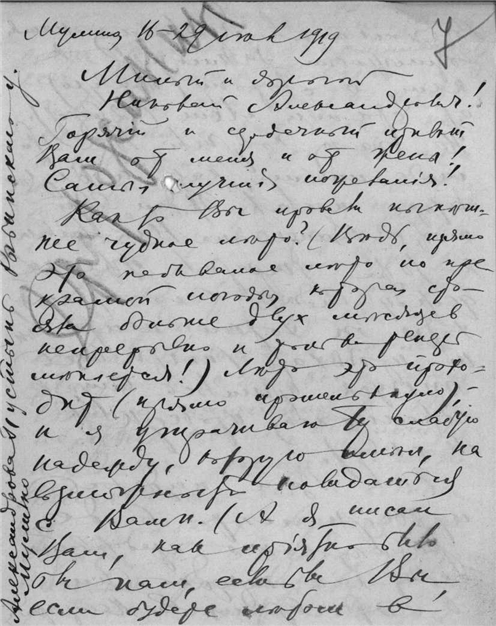 7
16-29 1919
Милый и дорогой
Николай Александрович!
Горячий и сердечный привет
Вам от меня и от жены!
Самыя лучшия пожелания!
Как то Вы провели нынеш-
нее чудное лето? (Ведь, прямо
это небывалое лето по пре
красной погоде, которая сто
яла больше двух месяцев
непрерывно и только
) Лето это прохо-
дит (прямо промелькнуло),
и я утрачиваю ту слабую
надежду, которую имел, на
возможность повидаться
с Вами. (А я писал
Вам, как приятно было
бы нам, если бы Вы,
если будете в
Александрова Пустынь Рыбинскому у.